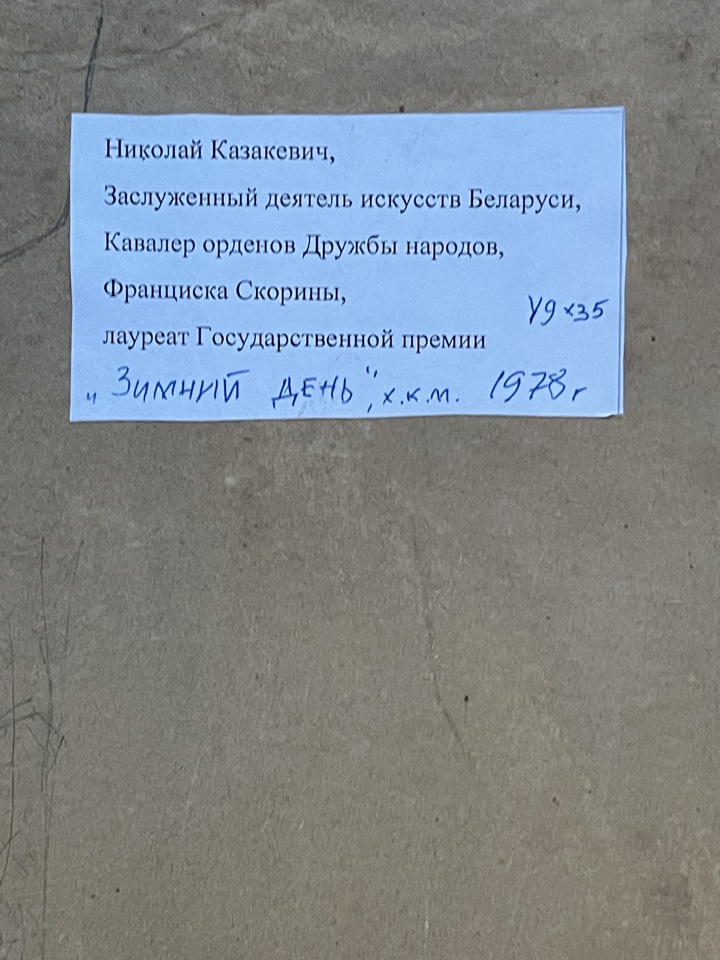 Николай Казакевич,
Заслуженный деятель искусств Беларуси,
Кавалер орденов Дружбы народов,
Франциска Скорины,
49х35
лауреат Государственной премии
„Зимний день", х.к.м. 1978г